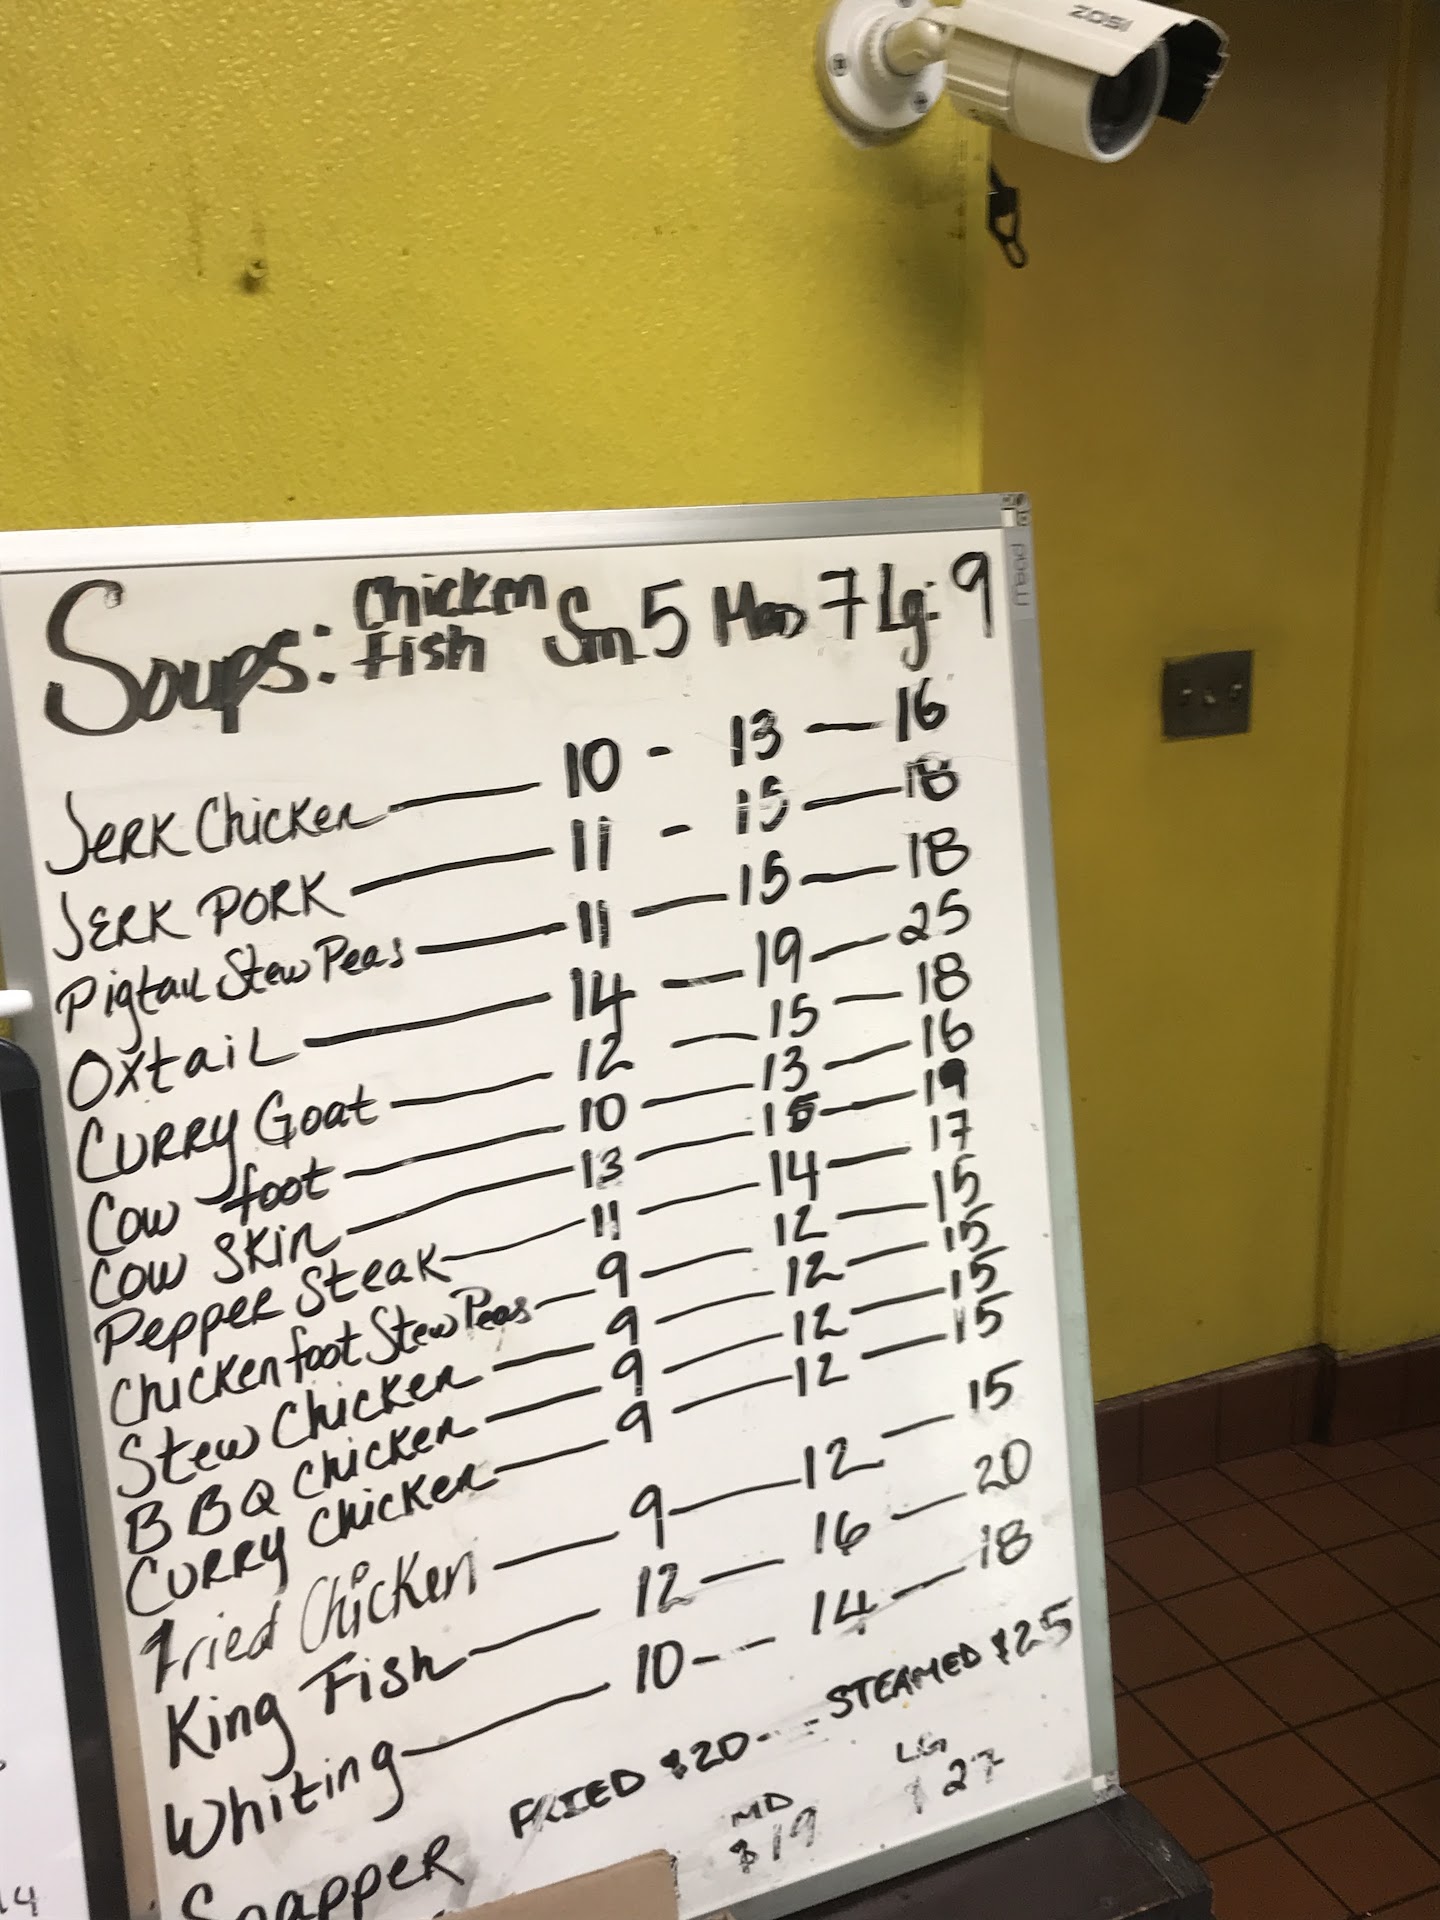 ZOSI
Soups: Chicken Fish Sm 5 Med 7 Lg: 9
Jerk Chicken — 10 - 13 — 16
Jerk Pork — 11 - 15 — 18
Pigtail Stew Peas — 11 — 15 — 18
Oxtail — 14 — 19 — 25
Curry Goat — 12 — 15 — 18
Cow foot — 10 — 13 — 16
Cow Skin — 13 — 15 — 19
Pepper Steak — 11 — 14 — 17
Chicken foot Stew Peas — 9 — 12 — 15
Stew Chicken — 9 — 12 — 15
BBQ Chicken — 9 — 12 — 15
Curry Chicken — 9 — 12 — 15
Fried Chicken — 9 — 12 — 15
King Fish — 12 — 16 — 20
Whiting — 10 - - 14 — 18
Snapper FRIED $20 --- STEAMED $25
MD LG
$19 $27
14